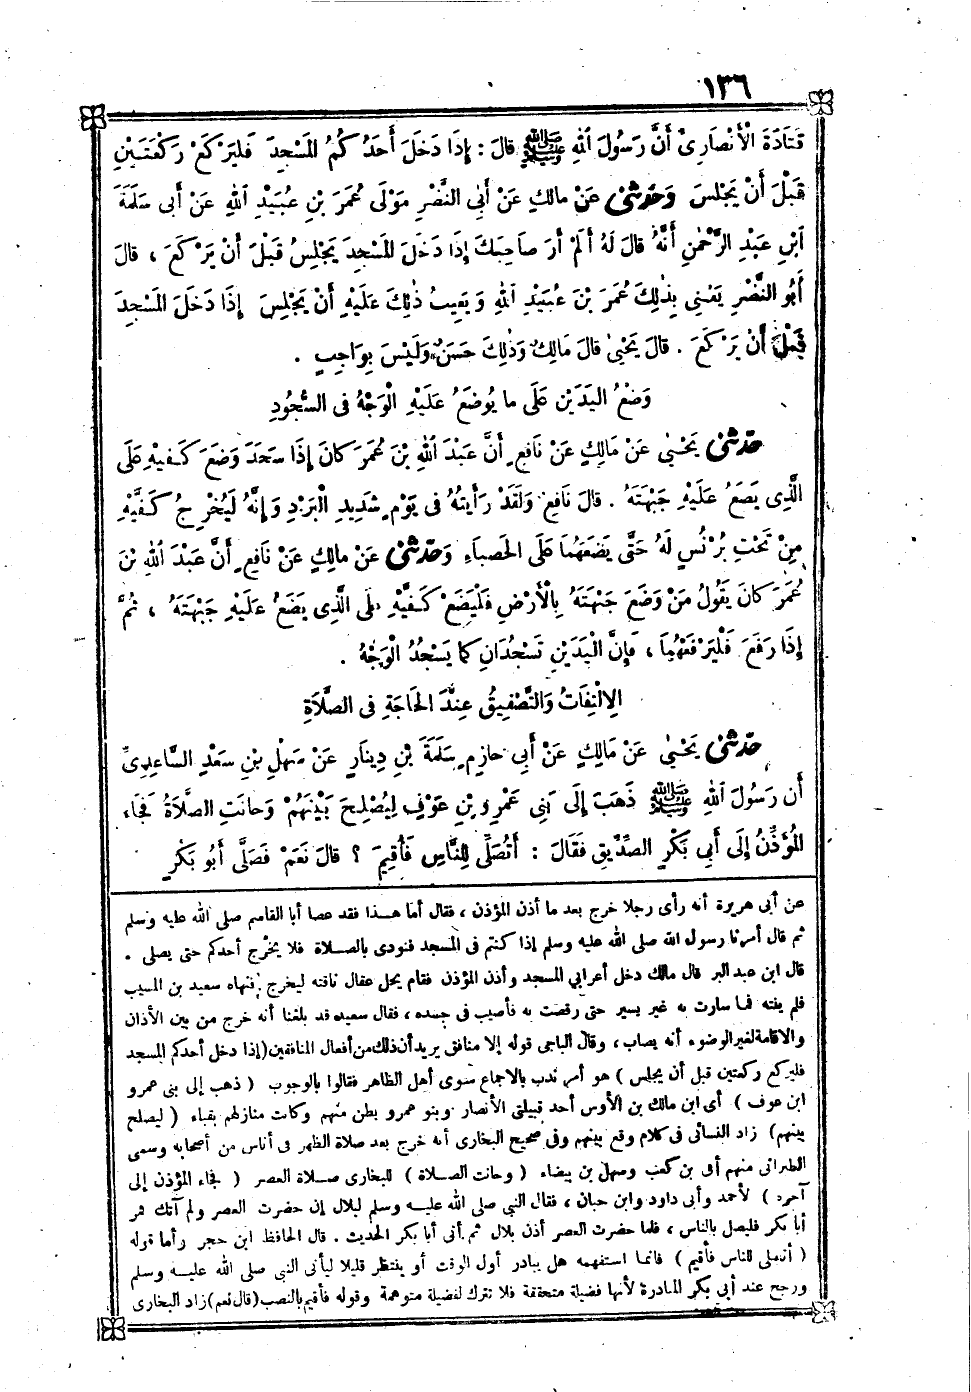 ١٣٦
قَتَادَةَ الْأَنْصَارِىِّ أَنَّ رَسُولَ اللهِ ﷺ قَالَ : إِذَا دَخَلَ أَحَدُكُمُ الْمَسْجِدَ فَلْيَرْكَعْ رَكْعَتَيْنِ
قَبْلَ أَنْ يَجْلِسَ وَحَدَّثَنِى عَنْ مَالِكٍ عَنْ أَبِى النَّضْرِ مَوْلَى عُمَرَ بْنِ عُبَيْدِ اللهِ عَنْ أَبِى سَلَمَةَ
ابْنِ عَبْدِ الرَّحْمٰنِ أَنَّهُ قَالَ لَهُ أَلَمْ أَرَ صَاحِبَكَ إِذَا دَخَلَ الْمَسْجِدَ يَجْلِسُ قَبْلَ أَنْ يَرْكَعَ ، قَالَ
أَبُو النَّضْرِ يَعْنِى بِذٰلِكَ عُمَرَ بْنَ عُبَيْدِ اللهِ وَيَعِيبُ ذٰلِكَ عَلَيْهِ أَنْ يَجْلِسَ إِذَا دَخَلَ الْمَسْجِدَ
قَبْلَ أَنْ يَرْكَعَ . قَالَ يَحْيٰى قَالَ مَالِكٌ وَذٰلِكَ حَسَنٌ وَلَيْسَ بِوَاجِبٍ .
وَضْعُ الْيَدَيْنِ عَلَى مَا يُوضَعُ عَلَيْهِ الْوَجْهُ فِى السُّجُودِ
حَدَّثَنِى يَحْيٰى عَنْ مَالِكٍ عَنْ نَافِعٍ أَنَّ عَبْدَ اللهِ بْنَ عُمَرَ كَانَ إِذَا سَجَدَ وَضَعَ كَفَّيْهِ عَلَى
الَّذِى يَضَعُ عَلَيْهِ جَبْهَتَهُ . قَالَ نَافِعٌ وَلَقَدْ رَأَيْتُهُ فِى يَوْمٍ شَدِيدِ الْبَرْدِ وَإِنَّهُ لَيُخْرِجُ كَفَّيْهِ
مِنْ تَحْتِ بُرْنُسٍ لَهُ حَتَّى يَضَعَهُمَا عَلَى الْحَصْبَاءِ وَحَدَّثَنِى عَنْ مَالِكٍ عَنْ نَافِعٍ أَنَّ عَبْدَ اللهِ بْنَ
عُمَرَ كَانَ يَقُولُ مَنْ وَضَعَ جَبْهَتَهُ بِالْأَرْضِ فَلْيَضَعْ كَفَّيْهِ عَلَى الَّذِى يَضَعُ عَلَيْهِ جَبْهَتَهُ ، ثُمَّ
إِذَا رَفَعَ فَلْيَرْفَعْهُمَا ، فَإِنَّ الْيَدَيْنِ تَسْجُدَانِ كَمَا يَسْجُدُ الْوَجْهُ .
الِالْتِفَاتُ وَالتَّصْفِيقُ عِنْدَ الْحَاجَةِ فِى الصَّلَاةِ
حَدَّثَنِى يَحْيٰى عَنْ مَالِكٍ عَنْ أَبِى حَازِمٍ سَلَمَةَ بْنِ دِينَارٍ عَنْ سَهْلِ بْنِ سَعْدٍ السَّاعِدِىِّ
أَن رَسُولَ اللهِ ﷺ ذَهَبَ إِلَى بَنِى عَمْرِو بْنِ عَوْفٍ لِيُصْلِحَ بَيْنَهُمْ وَحَانَتِ الصَّلَاةُ فَجَاءَ
الْمُؤَذِّنُ إِلَى أَبِى بَكْرٍ الصِّدِّيقِ فَقَالَ : أَتُصَلِّى لِلنَّاسِ فَأُقِيمَ ؟ قَالَ نَعَمْ فَصَلَّى أَبُو بَكْرٍ
عن أبى هريرة أنه رأى رجلا خرج بعد ما أذن المؤذن ، فقال أما هذا فقد عصا أبا القاسم صلى الله عليه وسلم
ثم قال أمرنا رسول الله صلى الله عليه وسلم إذا كنتم فى المسجد فنودى بالصلاة فلا يخرج أحدكم حتى يصلى .
قال ابن عبد البر قال مالك دخل أعرابى المسجد وأذن المؤذن فقام يحل عقال ناقته ليخرج فنهاه سعيد بن المسيب
فلم ينته فما سارت به غير يسير حتى رقصت به فأصيب فى جسده ، فقال سعيد قد بلغنا أنه خرج من بين الأذان
والاقامة لغير الوضوء أنه يصاب ، وقال الباجى قوله إلا منافق يريد أن ذلك من أفعال المنافقين (إذا دخل أحدكم المسجد
فليركع ركعتين قبل أن يجلس ) هو أمر ندب بالاجماع سوى أهل الظاهر فقالوا بالوجوب ( ذهب إلى بنى عمرو
ابن عوف ) أى ابن مالك بن الأوس أحد قبيلتى الأنصار وبنو عمرو بطن منهم وكانت منازلهم بقباء ( ليصلح
بينهم) زاد النسائى فى كلام وقع بينهم وفى صحيح البخارى أنه خرج بعد صلاة الظهر فى أناس من أصحابه وسمى
الطبرانى منهم أبى بن كعب وسهل بن بيضاء ( وحانت الصلاة ) للبخارى صلاة العصر ( فجاء المؤذن إلى
آخره ) لأحمد وأبى داود وابن حبان ، فقال النبى صلى الله عليه وسلم لبلال إن حضرت العصر ولم آتك فمر
أبا بكر فليصل بالناس ، فلما حضرت العصر أذن بلال ثم أتى أبا بكر الحديث . قال الحافظ ابن حجر وأما قوله
( أتصلى للناس فأقيم ) فانما استفهمه هل يبادر أول الوقت أو ينتظر قليلا ليأتى النبى صلى الله عليه وسلم
ورجح عند أبى بكر المبادرة لأنها فضيلة متحققة فلا تترك لفضيلة متوهمة وقوله فأقيم بالنصب (قال نعم) زاد البخارى